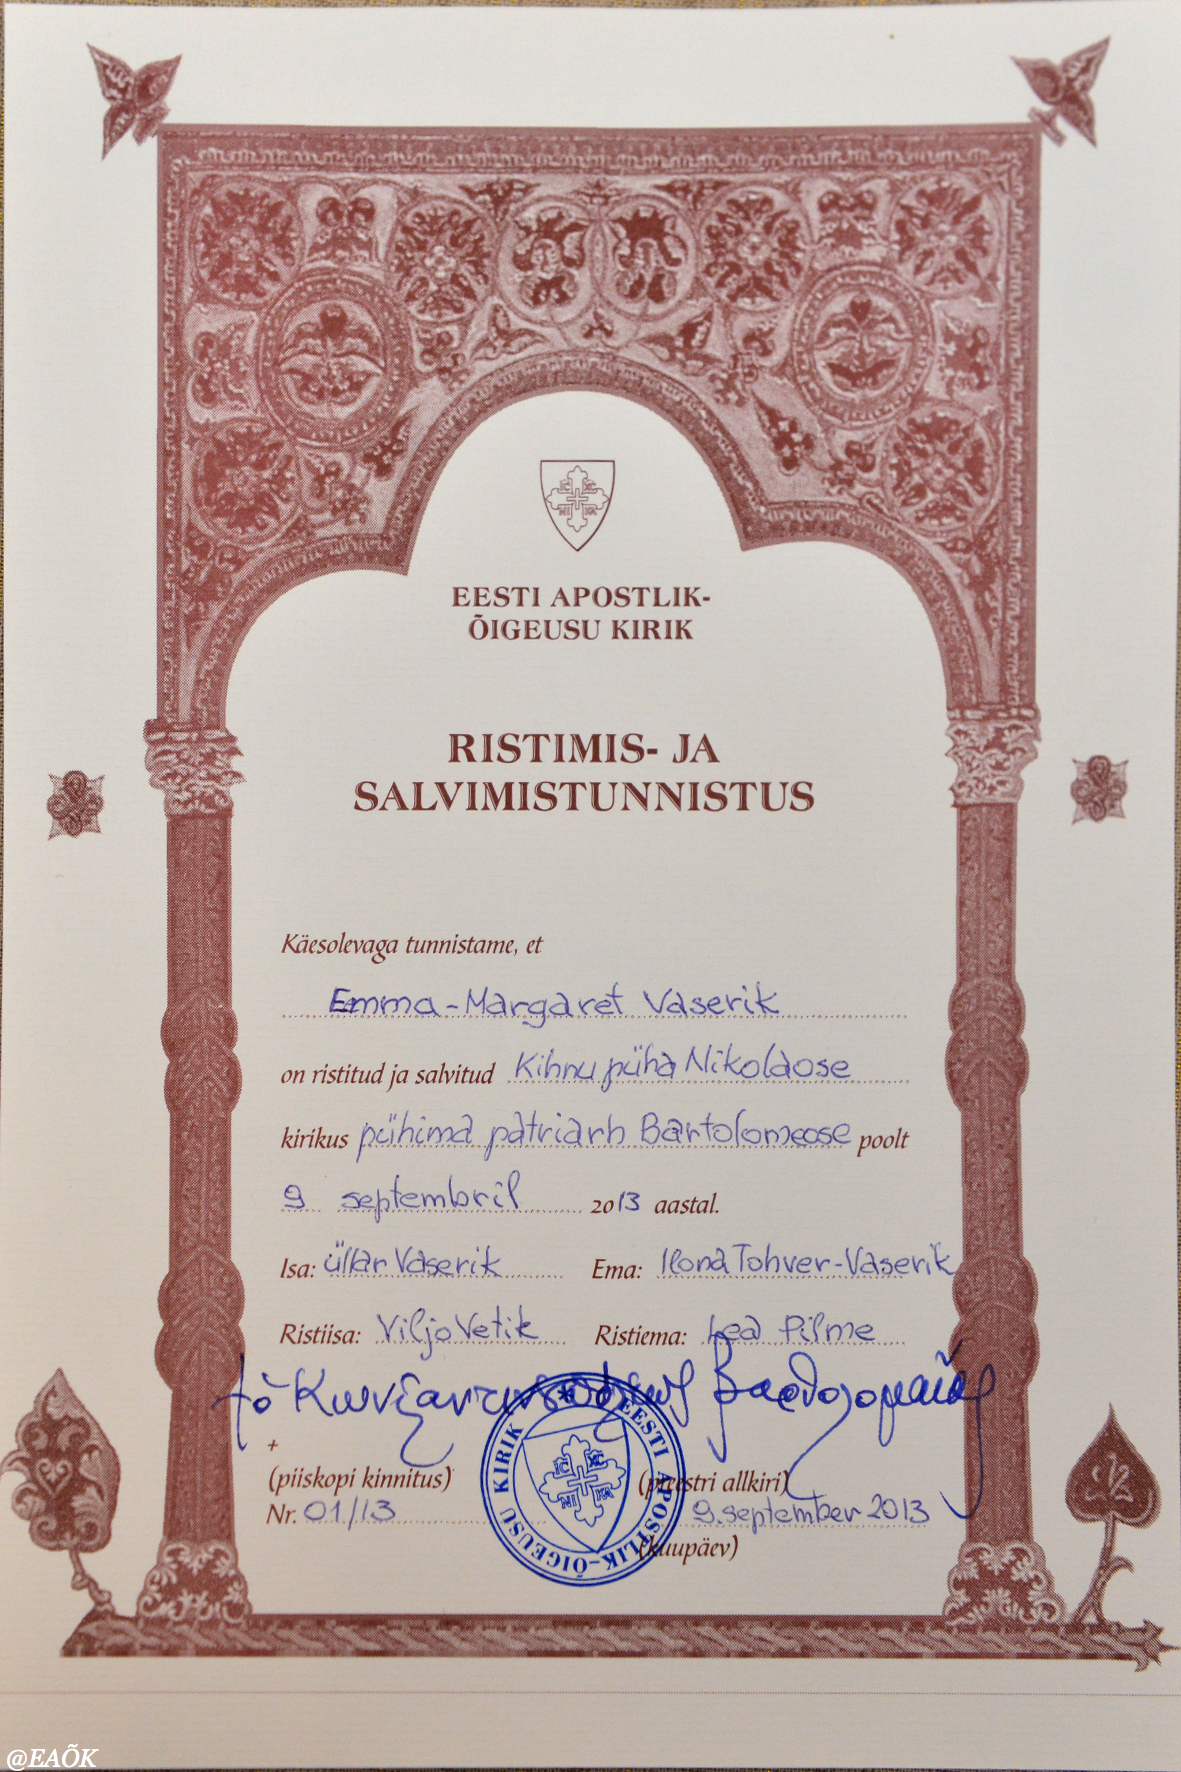 IC XC
NI KA
EESTI APOSTLIK-
ÕIGEUSU KIRIK
RISTIMIS- JA
SALVIMISTUNNISTUS
Käesolevaga tunnistame, et
Emma-Margaret Vaserik
on ristitud ja salvitud Kihnu püha Nikolaose
kirikus pühima patriarh Bartolomeose poolt
9 septembril 2013 aastal.
Isa: Üllar Vaserik Ema: Ilona Tohver-Vaserik
Ristiisa: Viljo Vetik Ristiema: Lea Pilme
+
(piiskopi kinnitus) (preestri allkiri)
Nr. 01/13 9. september 2013
(kuupäev)
EESTI APOSTLIK-ÕIGEUSU KIRIK
IC XC
NI KA
@EAÕK